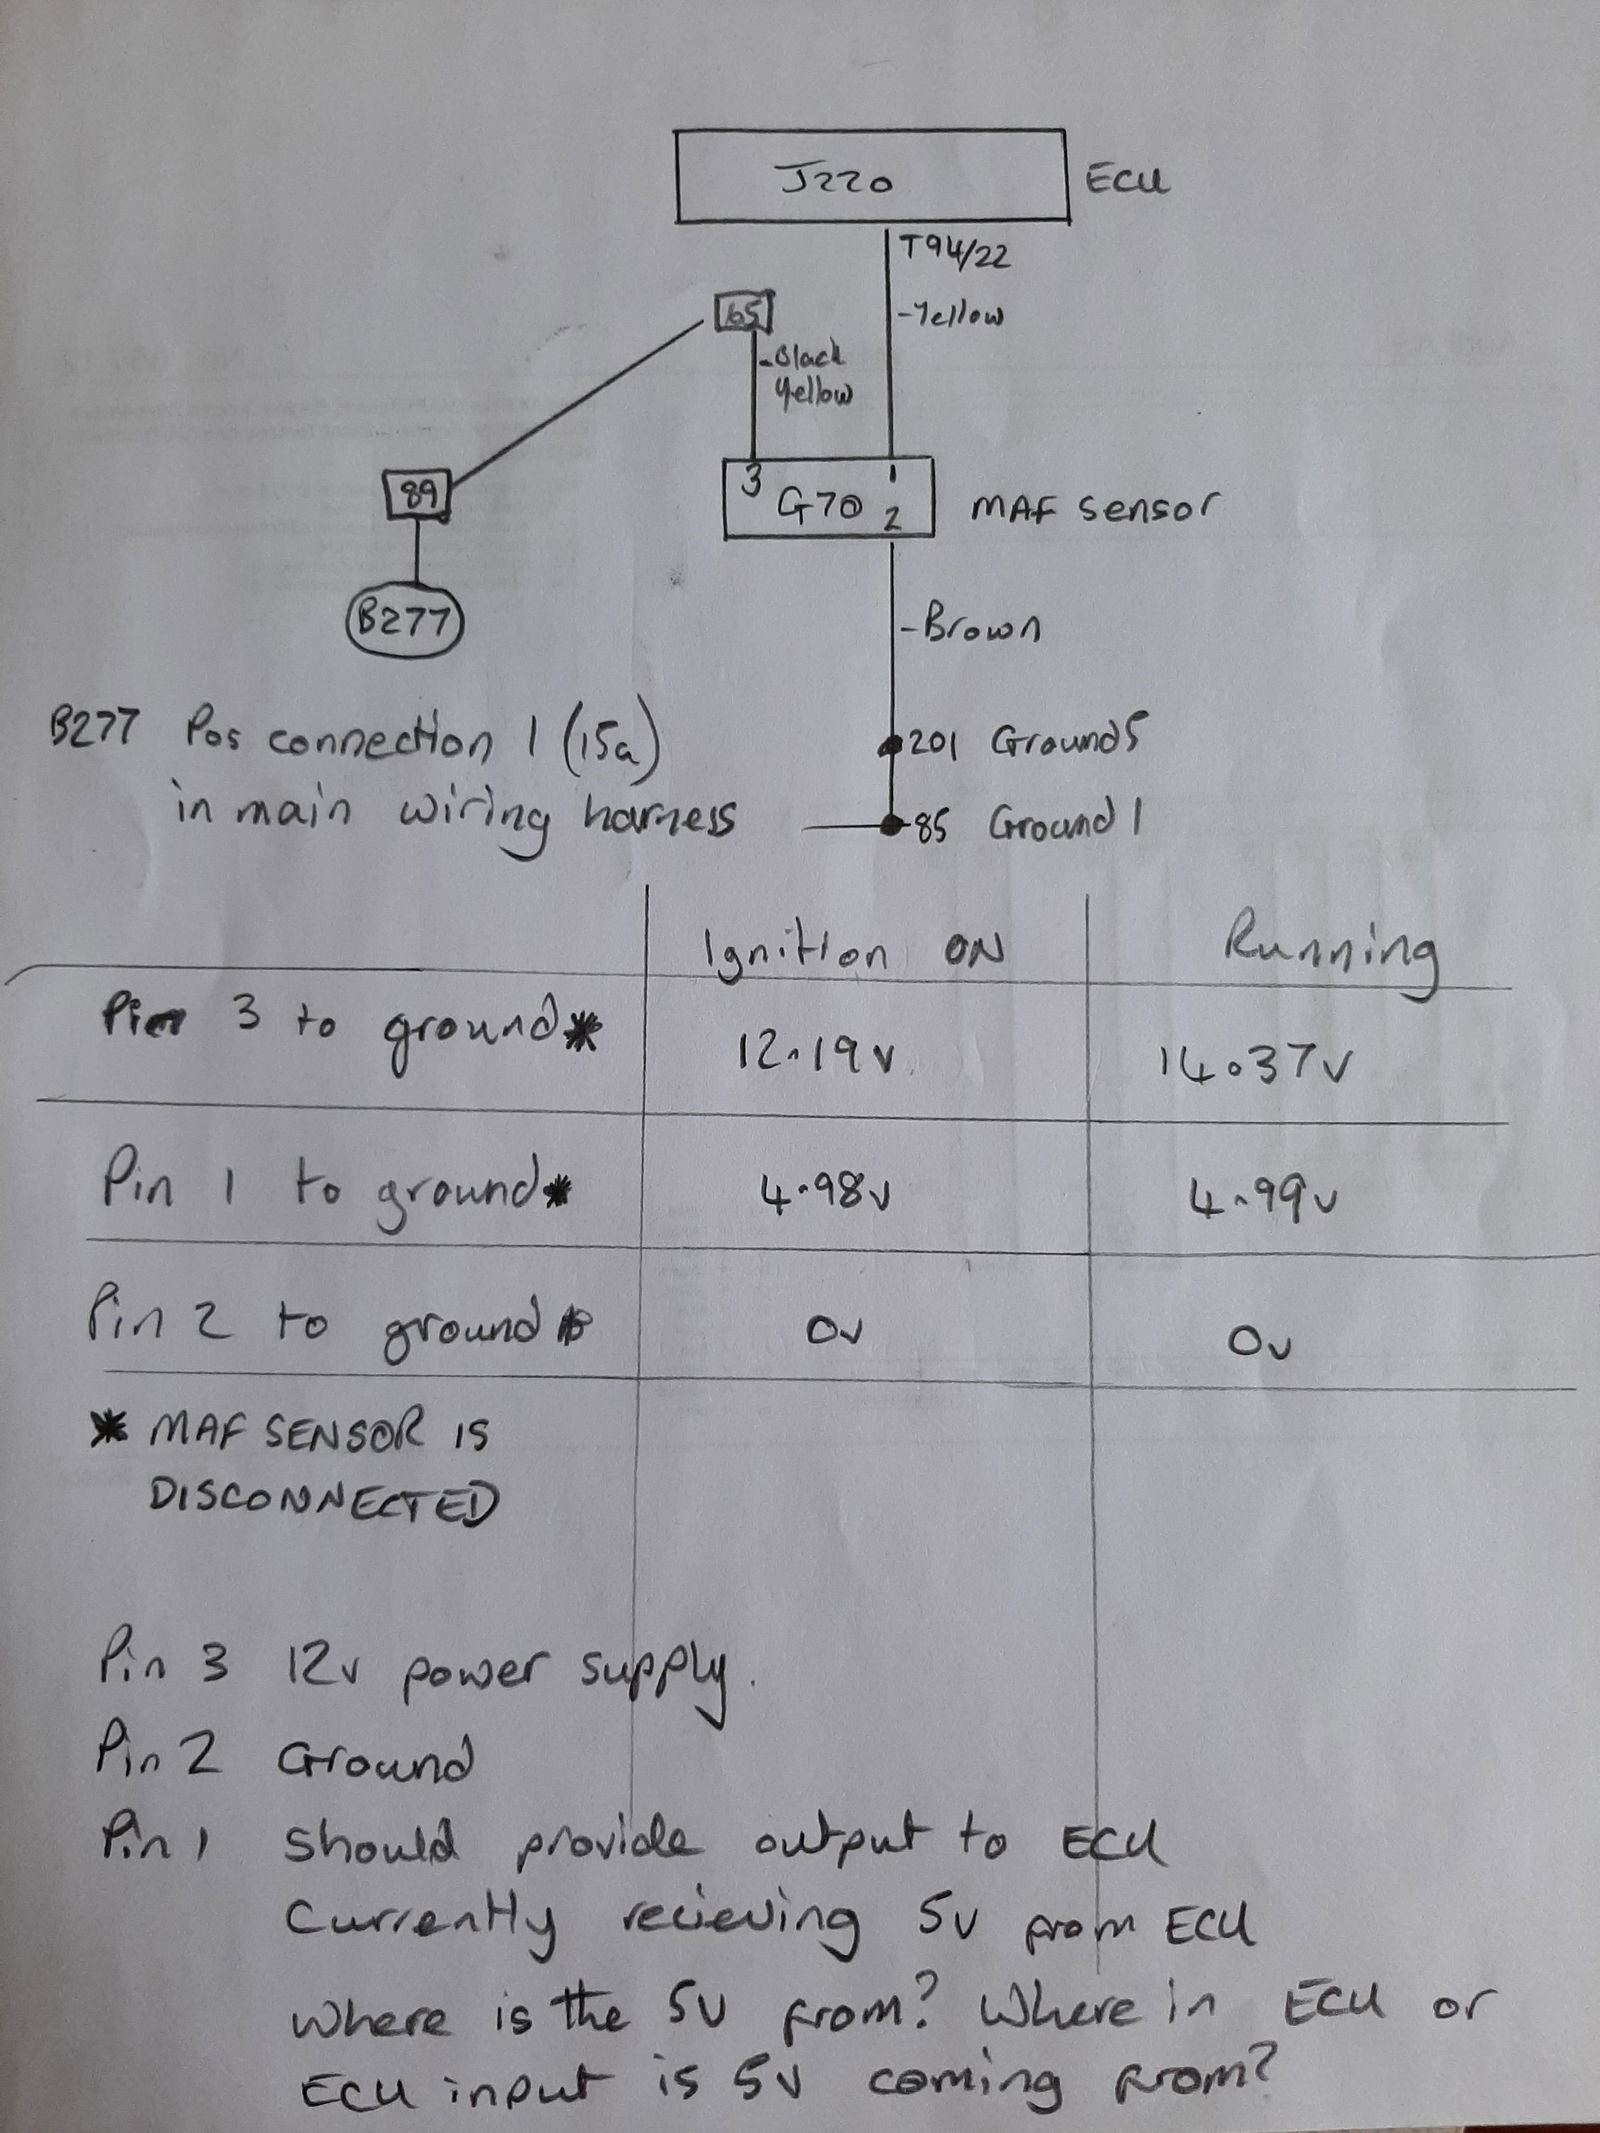 J220 ECU
T94/22
-Yellow
65
-Black
Yellow
89
3 1
G70 2 MAF sensor
B277
-Brown
B277 Pos connection 1 (15a)
in main wiring harness
201 Ground5
85 Ground 1
Ignition ON Running
Pin 3 to ground* 12.19v 14.37v
Pin 1 to ground* 4.98v 4.99v
Pin 2 to ground* 0v 0v
* MAF SENSOR IS
DISCONNECTED
Pin 3 12v power supply.
Pin 2 Ground
Pin 1 Should provide output to ECU
Currently recieving 5v from ECU
Where is the 5v from? Where in ECU or
ECU input is 5v coming from?